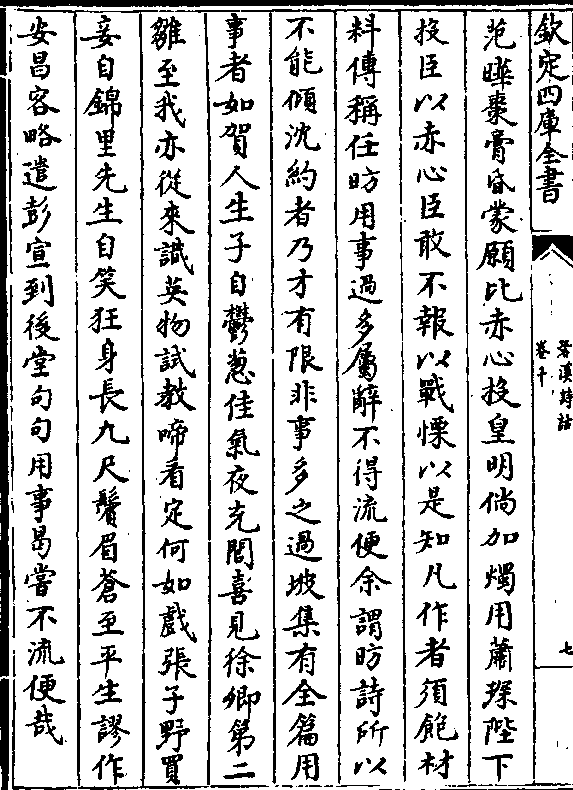 欽定四庫全書
䂬溪詩話
卷十
七
范曄棗膏昏蒙願比赤心投皇明倘加燭用蕭琛陛下
投臣以赤心臣敢不報以戰慄以是知凡作者須飽材
料傳稱任昉用事過多屬辭不得流便余謂昉詩所以
不能傾沈約者乃才有限非事多之過坡集有全篇用
事者如賀人生子自鬱葱佳氣夜充閭喜見徐卿第二
雛至我亦從來識英物試教啼看定何如戲張子野買
妾自錦里先生自笑狂身長九尺鬢眉蒼至平生謬作
安昌客略遣彭宣到後堂句句用事曷嘗不流便哉